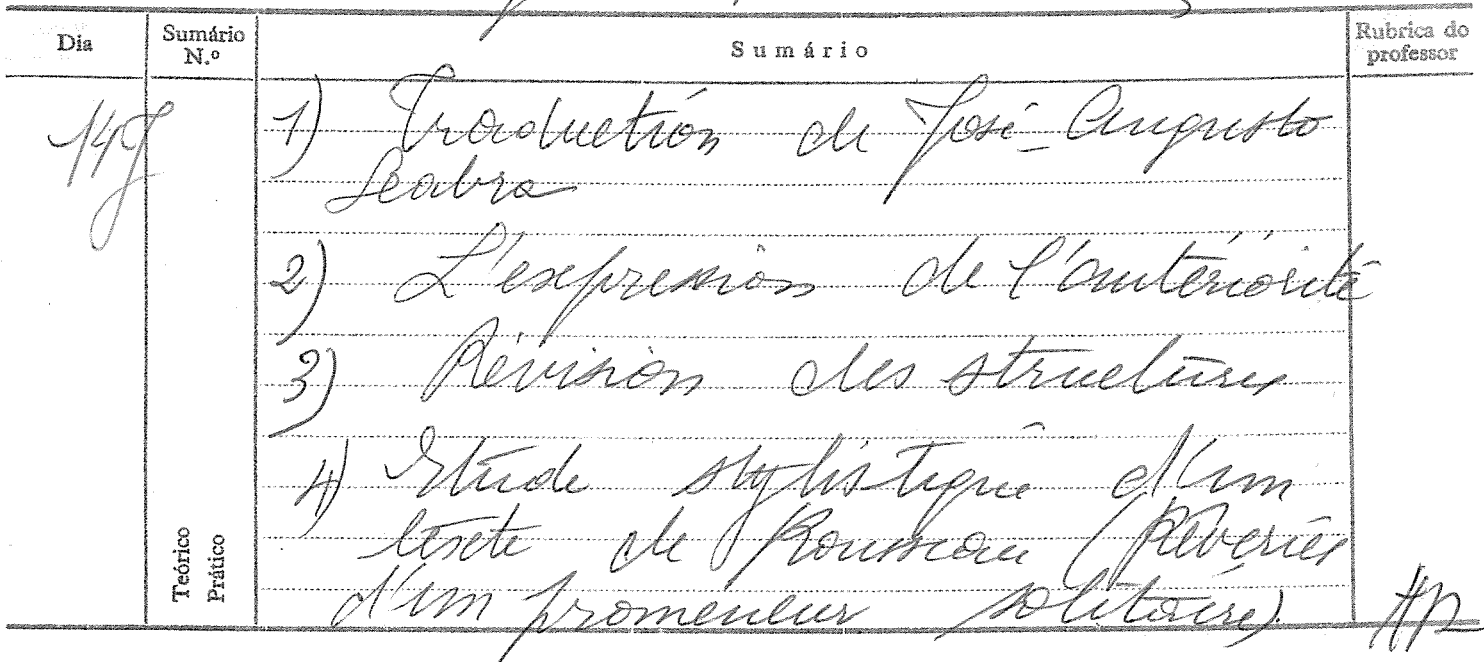 Dia
Sumário N.º
Sumário
Rubrica do professor
1) Traduction de José-Augusto
Seabra
2) L'expression de l'antériorité
3) Révision des structures
4) Etude stylistique d'un
texte de Rousseau (Rêveries
d'un promeneur solitaire).
Teórico
Prático